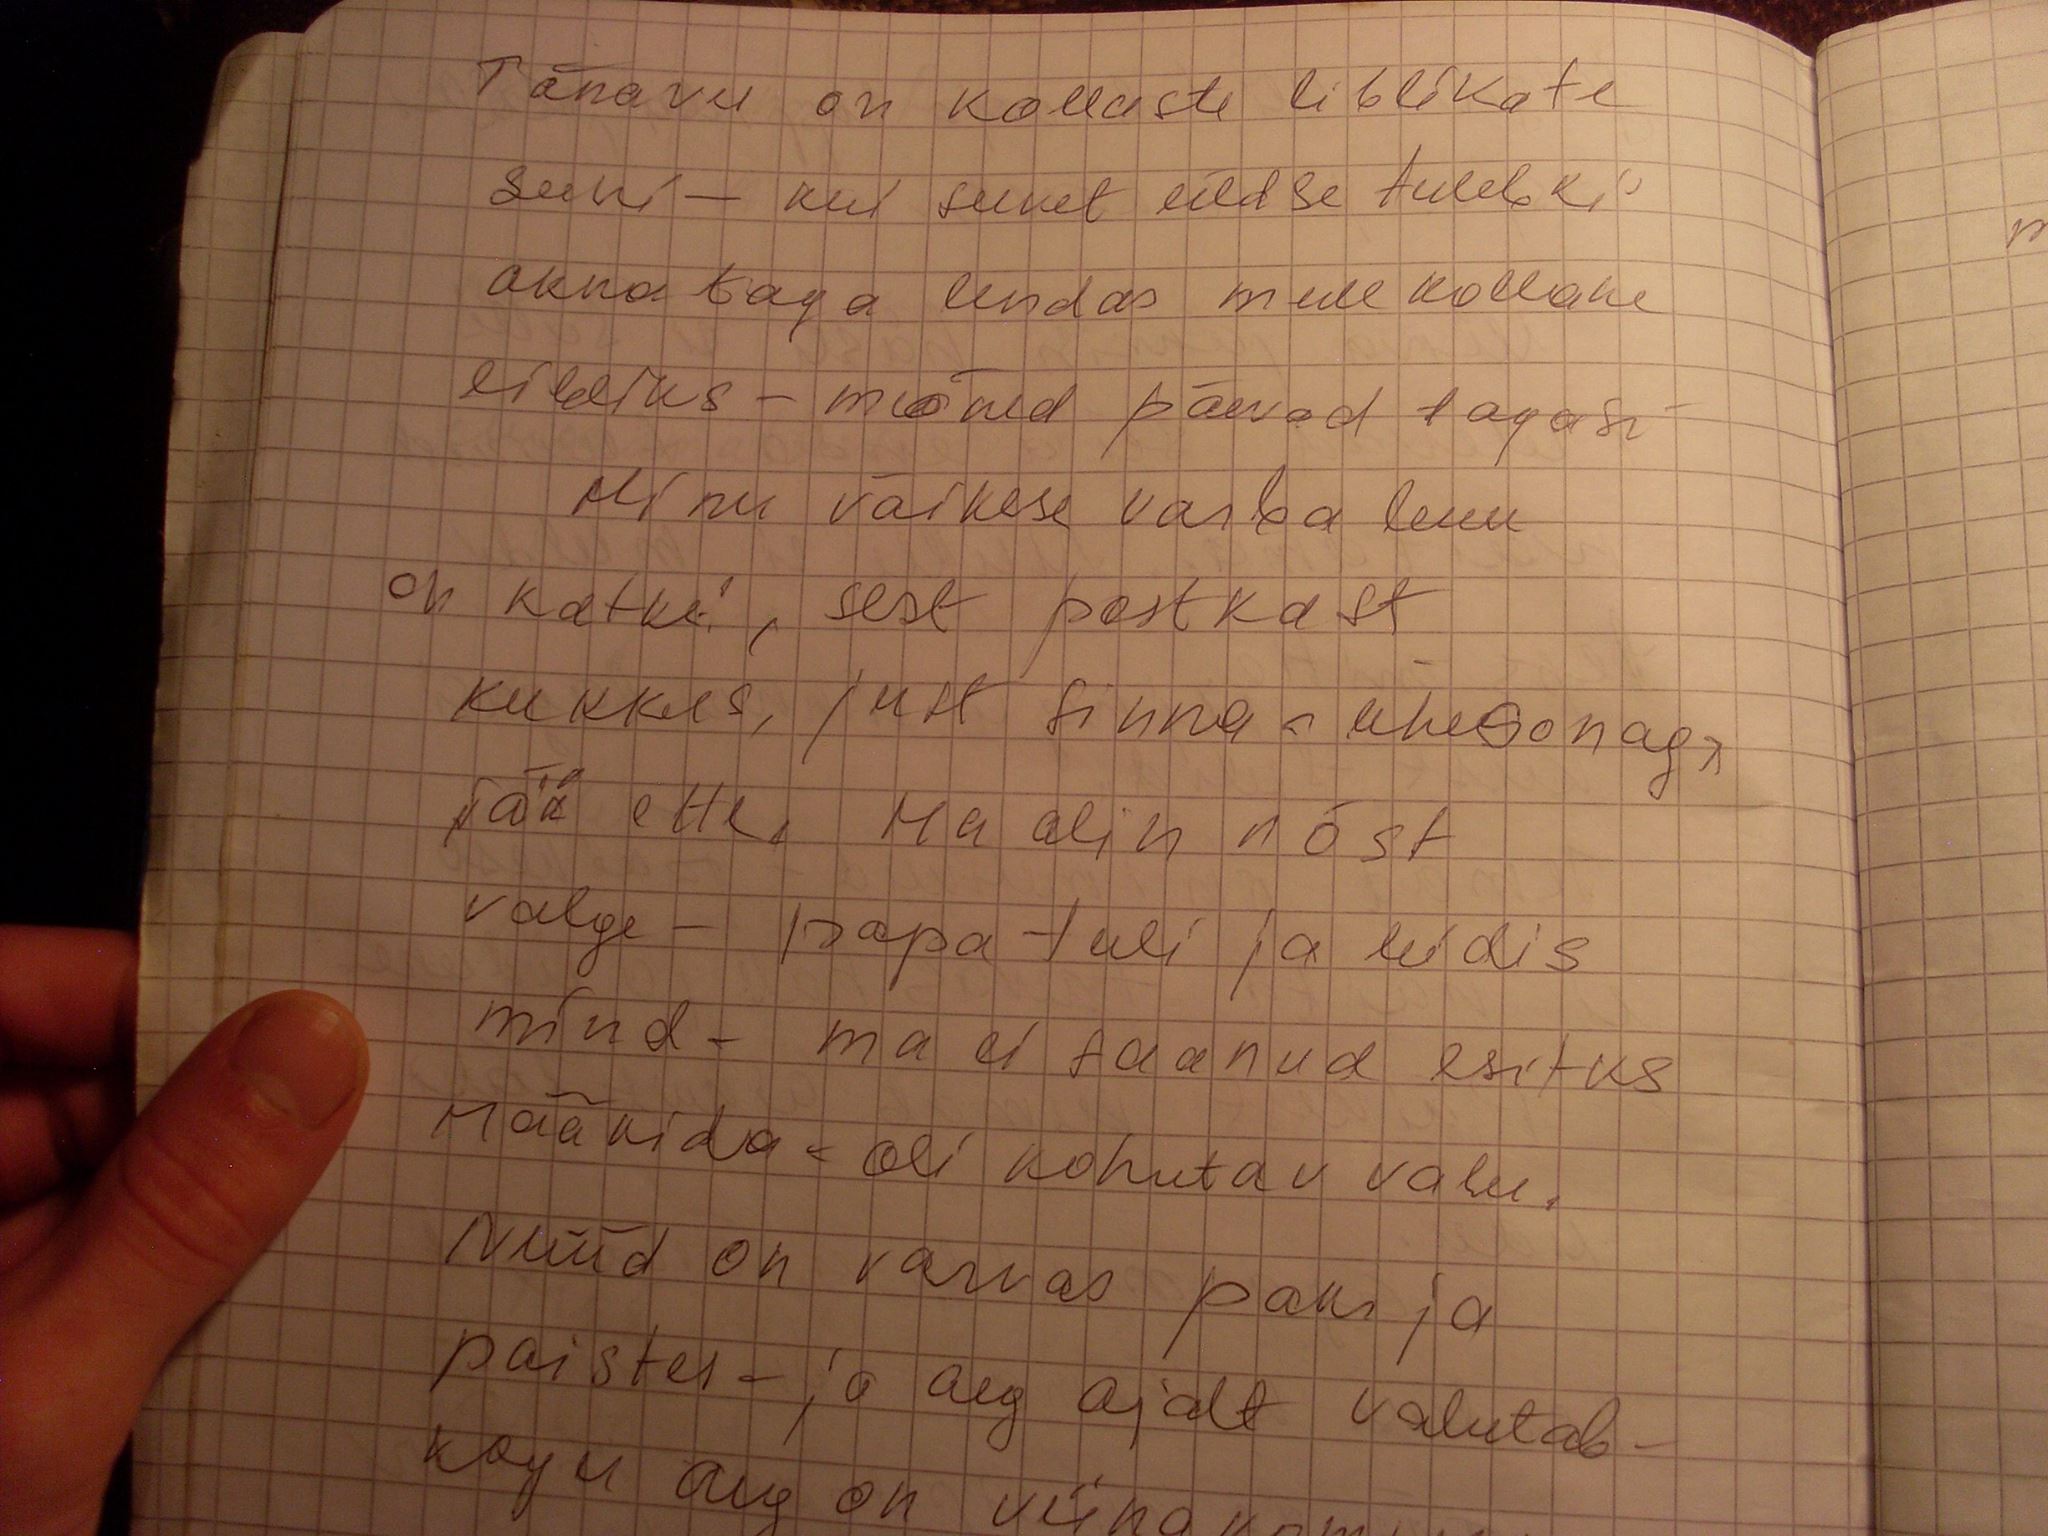 Tänavu on kollaste liblikate
suvi – kui suvet üldse tulebki
akna taga lendas mull kollane
liblikas – mõned päevad tagasi –
Minu väikese varba luu
on katki, sest postkast
kukkus, just sinna – ühesõnaga
jäi ette. Ma olin näost
valge – papa tuli ja leidis
mind – ma ei saanud esiteks
määkida – oli kohutav valu.
Nüüd on varvas paks ja
paistes – ja aeg ajalt valutab –
kogu aeg on